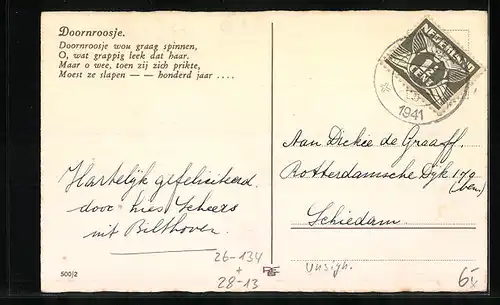 Doornroosje.
Doornroosje wou graag spinnen,
O, wat grappig leek dat haar.
Maar o wee, toen zij zich prikte,
Moest ze slapen — — honderd jaar ....
NEDERLAND
CENT
1941
Hartelijk gefeliciteerd.
door Scheers
uit Bilthoven.
Aan Dickie de Graaff.
Rotterdamsche Dyk 179
(ben)
Schiedam.
500/2
26-134
+
28-13
unsign.